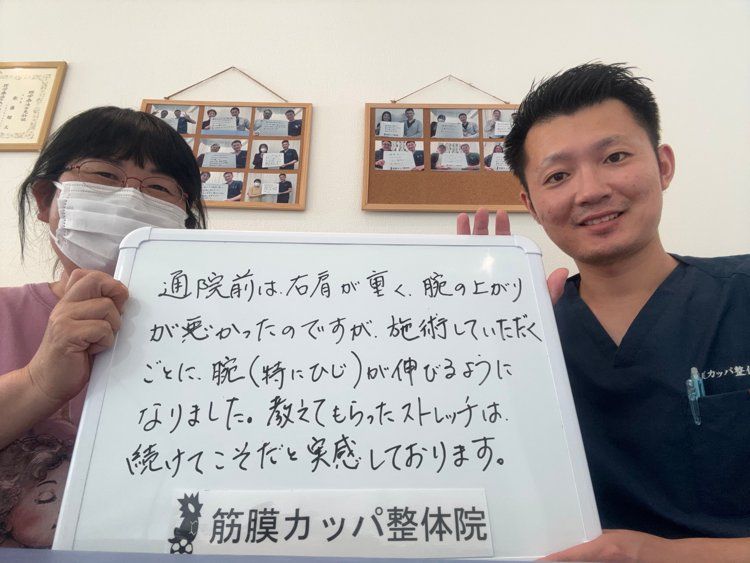 通院前は、右肩が重く、腕の上がり
が悪かったのですが、施術していただく
ごとに、腕(特にひじ)が伸びるように
なりました。教えてもらったストレッチは、
続けてこそだと実感しております。
筋膜カッパ整体院
カッパ整体